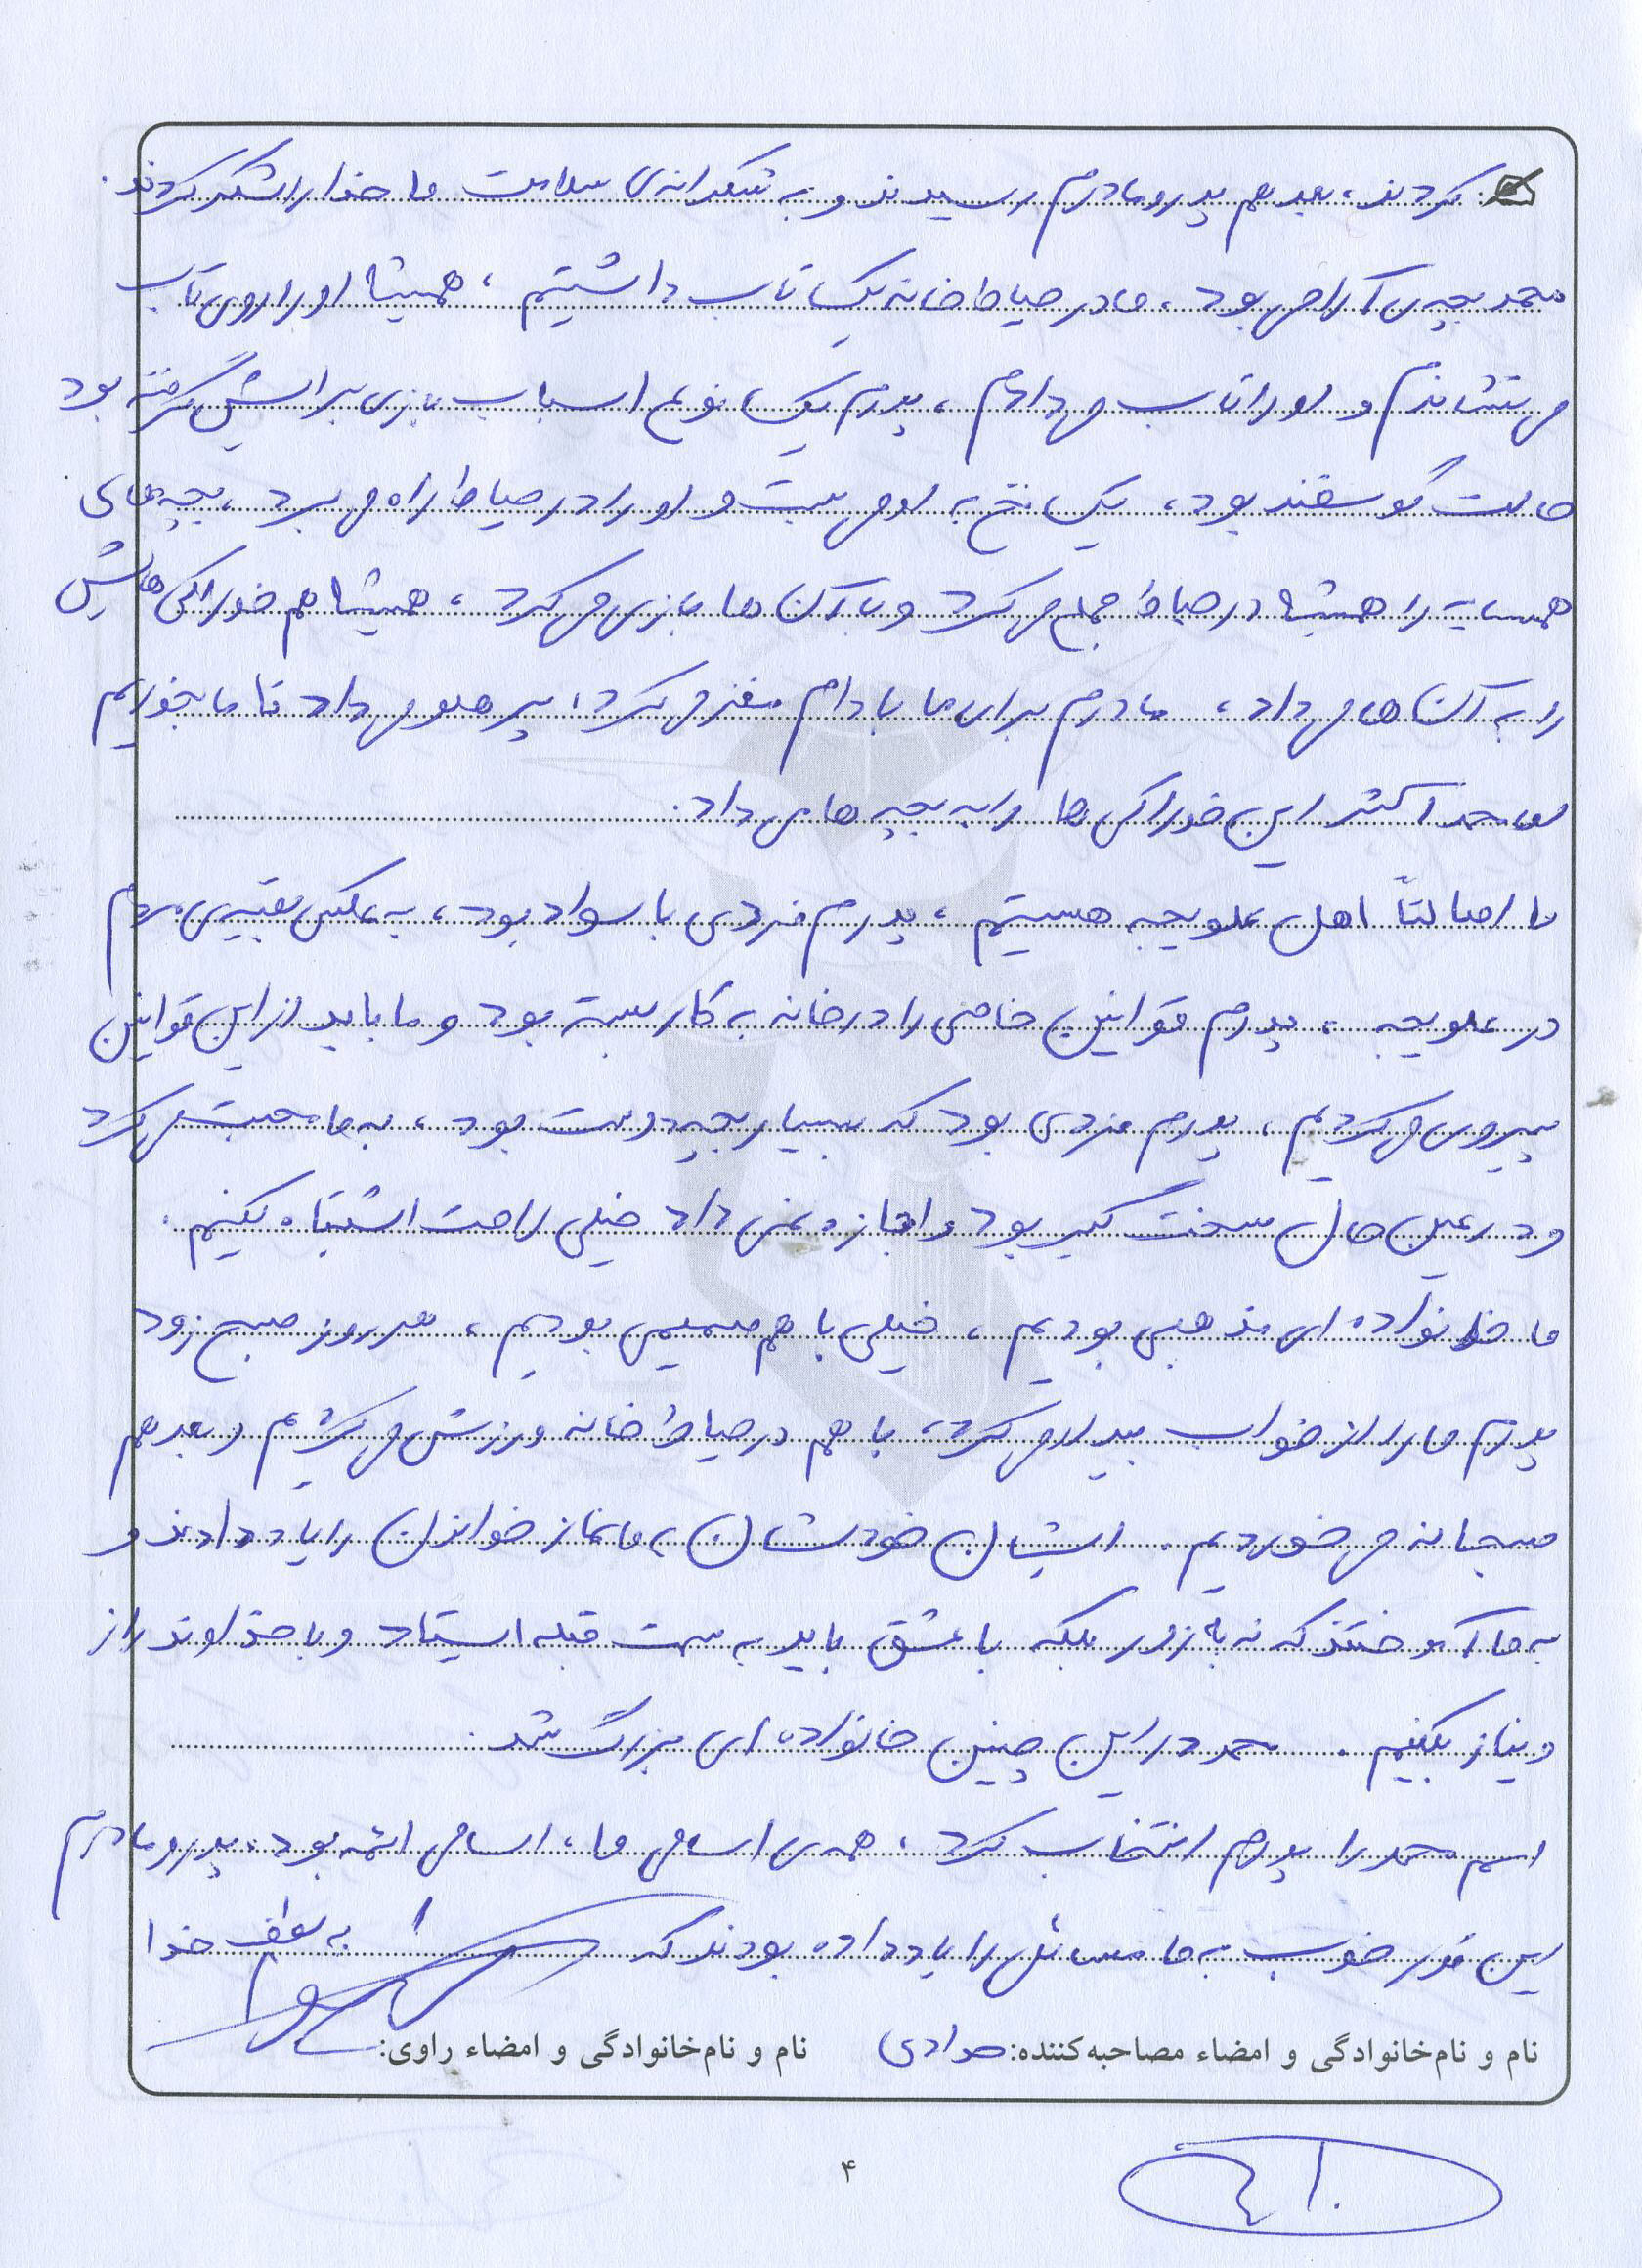 کردند، بعد هم پدر و مادرم رسیدند و به شکرانه‌ی سلامت ما خدا را شکر کردند.
محمد بچه‌ی آرامی بود، ما در حیاط خانه یک تاب داشتیم، همیشه او را روی تاب
می نشاندم و او را تاب می دادم، پدرم یک نوع اسباب بازی برایش گرفته بود
حالت گوسفند بود، یک نخ به او می بست و او را در حیاط راه می برد، بچه‌های
همسایه را همیشه در حیاط جمع می کرد و با آن ها بازی می کرد، همیشه هم خوراکی هایش
را به آن ها می داد، مادرم برای ما بادام مغز می کرد، پر هلو می داد تا ما بخوریم
محمد اکثر این خوراکی ها را به بچه ها می داد.
ما اصالتاً اهل علویجه هستیم، پدرم فردی با سواد بود، به عکس بقیه‌ی مردم
در علویجه، پدرم قوانین خاصی را در خانه به کار بسته بود و ما باید از این قوانین
پیروی می کردیم، پدرم مردی بود که بسیار بچه دوست بود، به ما محبت می کرد
و در عین حال سخت گیر بود و اجازه نمی داد خیلی راحت اشتباه بکنیم.
ما خانواده ای مذهبی بودیم، خیلی با هم صمیمی بودیم، هر روز صبح زود
پدرم ما را از خواب بیدار می کرد، با هم در حیاط خانه ورزش می کردیم و بعد هم
صبحانه می خوردیم. ایشان خودشان به ما نماز خواندن را یاد دادند و
به ما آموختند که نه به زور بلکه با عشق باید به سمت قبله ایستاد و با خداوند راز
و نیاز بکنیم. محمد در این چنین خانواده ای بزرگ شد.
اسم محمد را پدرم انتخاب کرد، همه‌ی اسامی ما، اسامی ائمه بود، پدر و مادرم
این قدر خوب به ما مسائل را یاد داده بودند که به لطف خدا
نام و نام‌خانوادگی و امضاء مصاحبه‌کننده: مرادی نام و نام‌خانوادگی و امضاء راوی:
۴